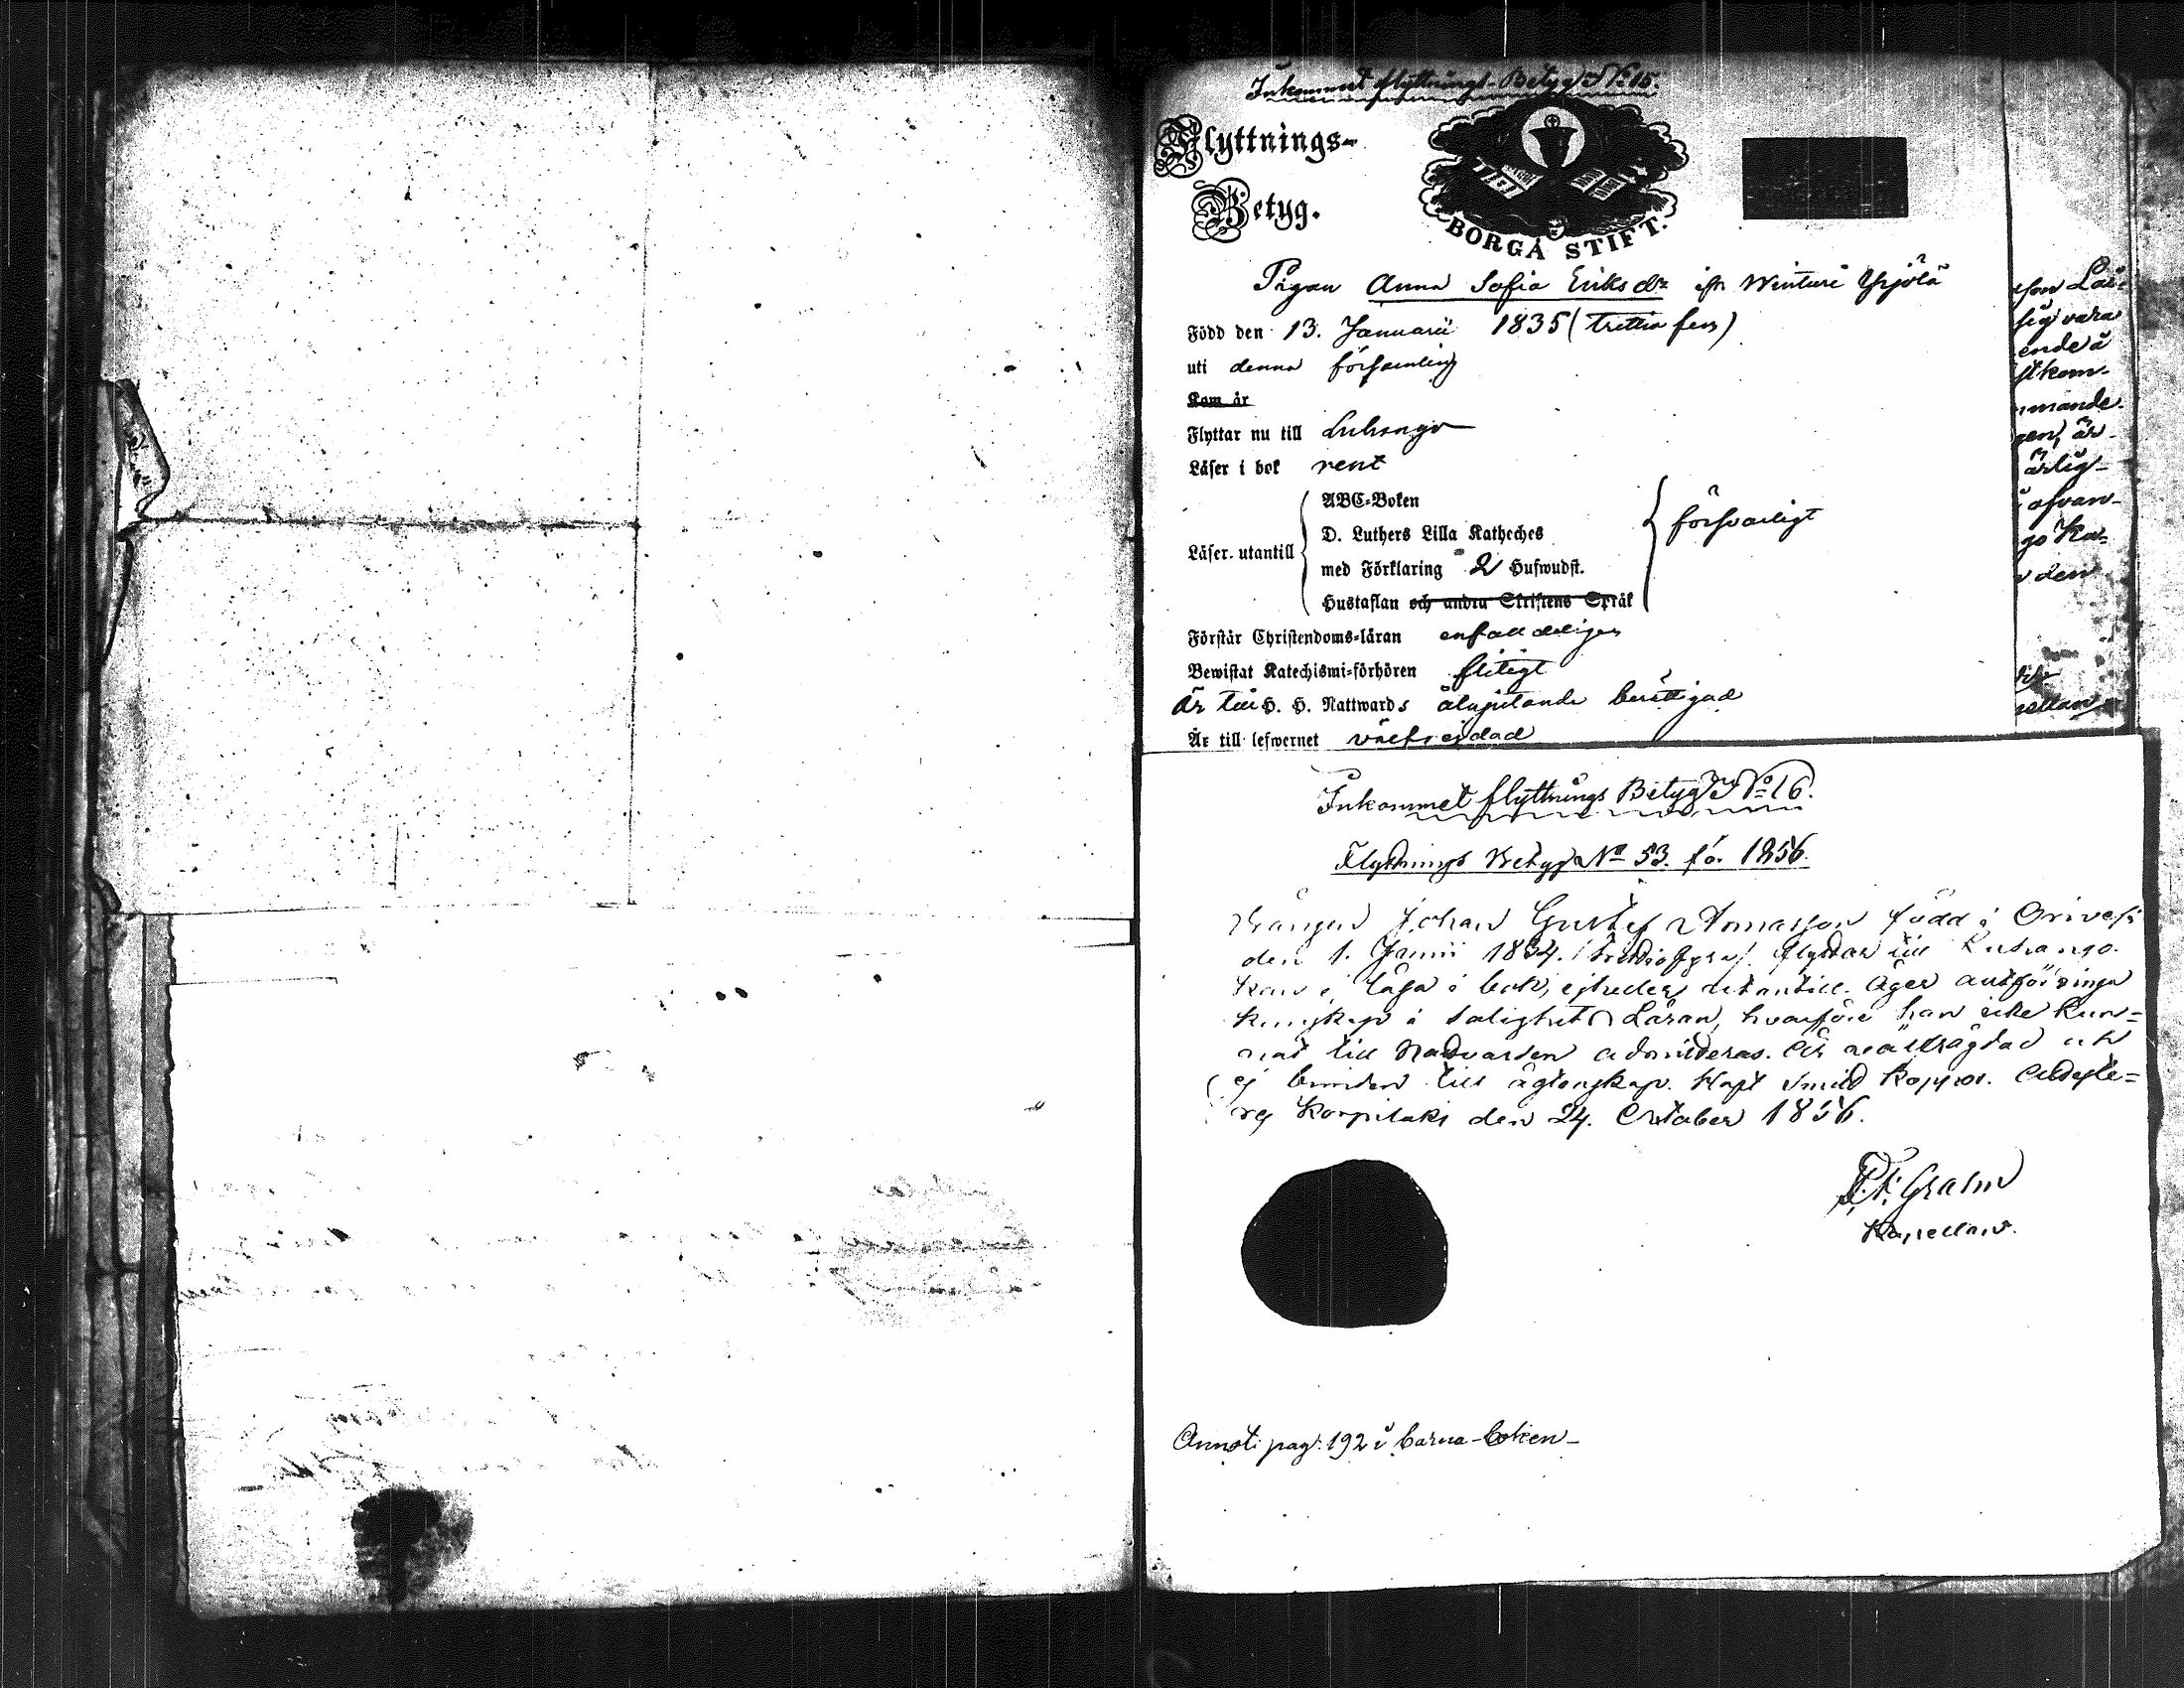 Inkommet flyttnings-Betyg N:o 15.
Flyttnings-
Betyg.
BORGÅ STIFT.
Pigan Anna Sofia Eriksdr ifr. Winturi Yrjölä
Född den 13. Januarii 1835 (trettio fem)
uti denna församling
Kom år
Flyttar nu till Luhango
Läser i bok rent
Läser utantill
ABC-Boken
D. Luthers Lilla Katheches
med Förklaring 2 Hufwudst.
Hustaflan och andra Skriftens Språk
försvarligt
Förstår Christendoms-läran enfalldeligen
Bewistat Katechismi-förhören flitigt
Är till H. H. Nattwards åtnjutande berättigad
Är till lefwernet välfrejdad
son Lai-
sig vara
ende å
st kom-
mmande.
gen, är
ärlig-
ofvan-
go Ka-
den
ellan
Inkommet flyttnings Betyg N:o 16.
Flyttnings Betyg No 53. för 1856.
Drängen Johan Gustaf Thomasson född i Orivesi
den 1. Junii 1834. /: Trettiofyra :/. flyttar till Luhango.
Kan ej läsa i bok, ej heller utantill. Äger allt för ringa
kunskap i Salighets Läran, hvarföre han icke kun=
nat till Nattvarden admitteras. Är wälfrägdad och
ej bunden till ägtenskap. Haft Smitt Koppor. Atteste=
ras Korpilaks den 24. October 1856.
Grahn
Kapellan.
Annot: pag: 192 i barna-boken-